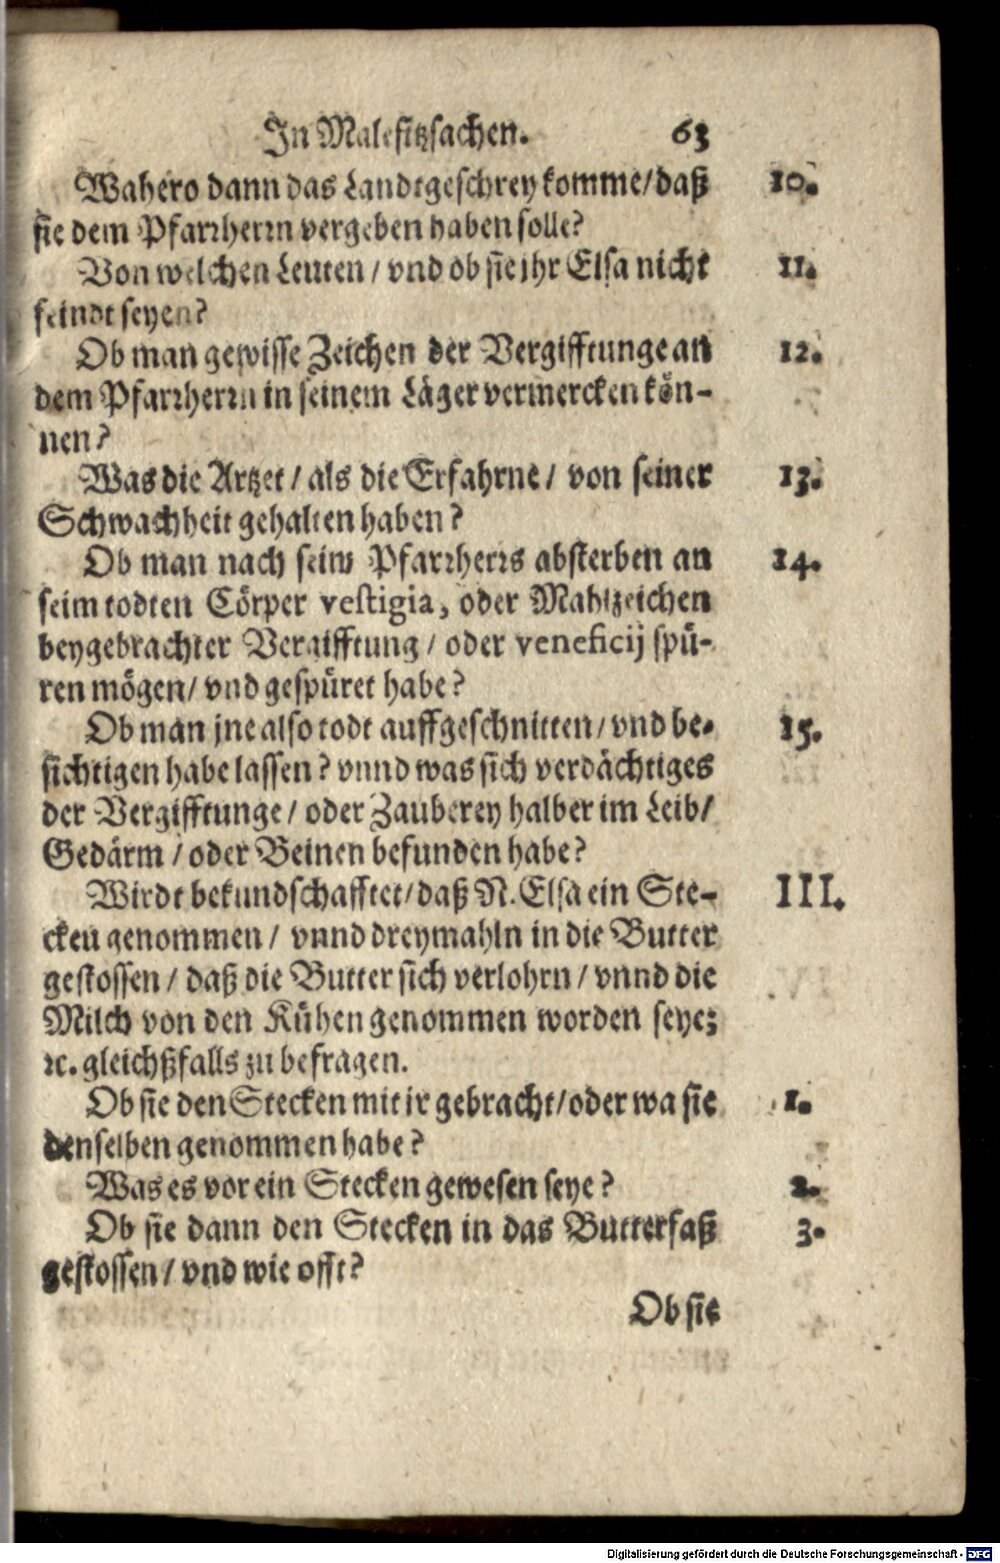 In Malefitzsachen. 63
Wahero dann das Landtgeschrey komme/ daß 10.
sie dem Pfarrherrn vergeben haben solle?
Von welchen Leuten / vnd ob sie jhr Elsa nicht 11.
feindt seyen?
Ob man gewisse Zeichen der Vergifftunge an 12.
dem Pfarrherrn in seinem Läger vermercken kön-
nen?
Was die Artzet / als die Erfahrne / von seiner 13.
Schwachheit gehalten haben?
Ob man nach sein Pfarrherrs absterben an 14.
seim todten Cörper vestigia, oder Mahlzeichen
beygebrachter Vergifftung / oder veneficij spü-
ren mögen/ vnd gespüret habe?
Ob man jne also todt auffgeschnitten/ vnd be- 15.
sichtigen habe lassen? vnnd was sich verdächtiges
der Vergifftunge / oder Zauberey halber im Leib/
Gedärm / oder Beinen befunden habe?
Wirdt bekundschafftet/ daß N. Elsa ein Ste- III.
cken genommen / vnnd dreymahln in die Butter
gestossen / daß die Butter sich verlohrn / vnnd die
Milch von den Kühen genommen worden seye;
ꝛc. gleichßfalls zu befragen.
Ob sie den Stecken mit ir gebracht/ oder wa sie 1.
denselben genommen habe?
Was es vor ein Stecken gewesen seye? 2.
Ob sie dann den Stecken in das Butterfaß 3.
gestossen / vnd wie offt?
Ob sie
Digitalisierung gefördert durch die Deutsche Forschungsgemeinschaft - DFG